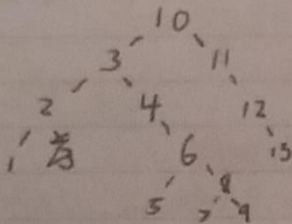 10
3 11
2 4 12
1 6 13
5 8
7 9